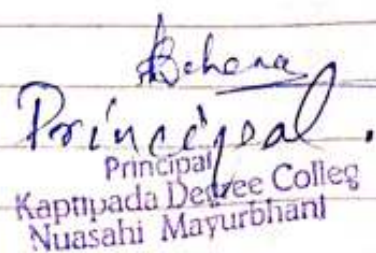 Behera
Principal.
Principal
Kaptipada Degree Colleg
Nuasahi Mayurbhanj